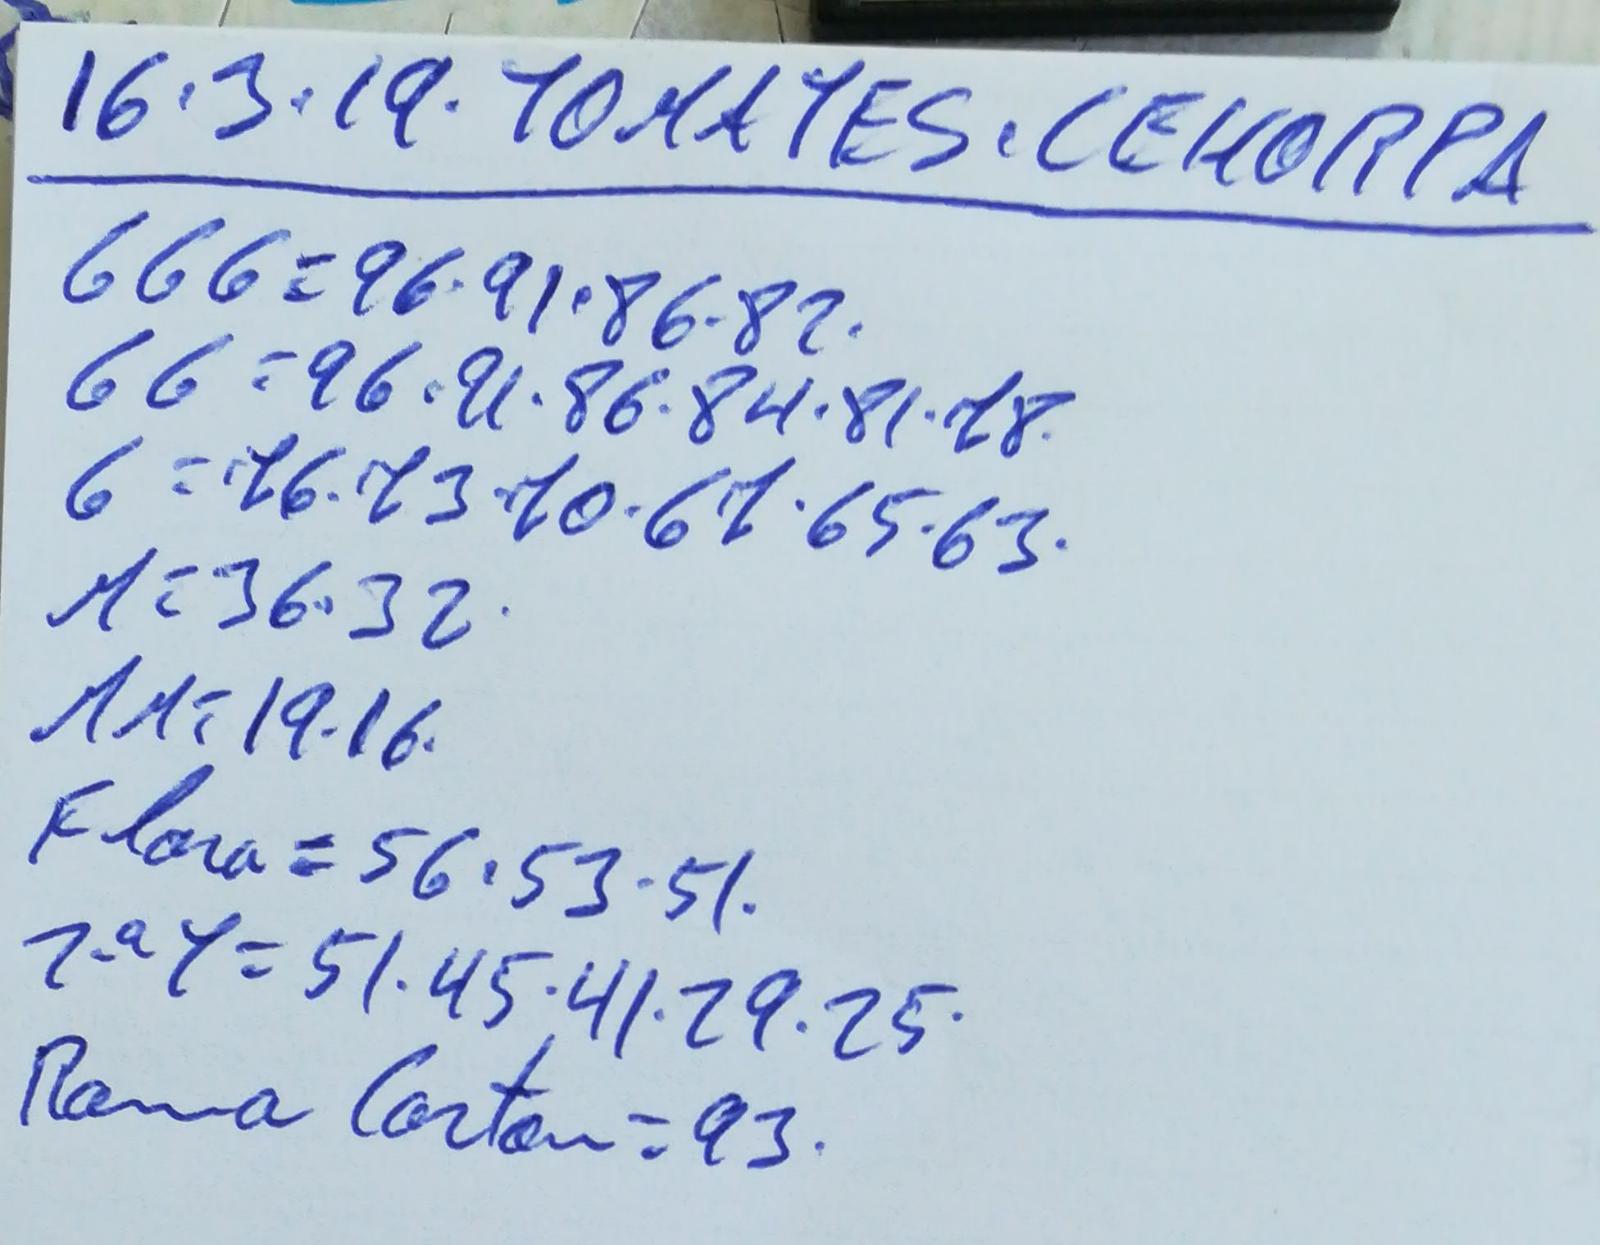 16.3.19. TOMATES. CEHORPA
GGG=96.91.86.82.
GG=96.91.86.84.81.78.
G=76.73.70.67.65.63.
M=36.32.
MM=19.16.
Flora=56.53.51.
2.ªT=51.45.41.29.25.
Rama Cartón=93.